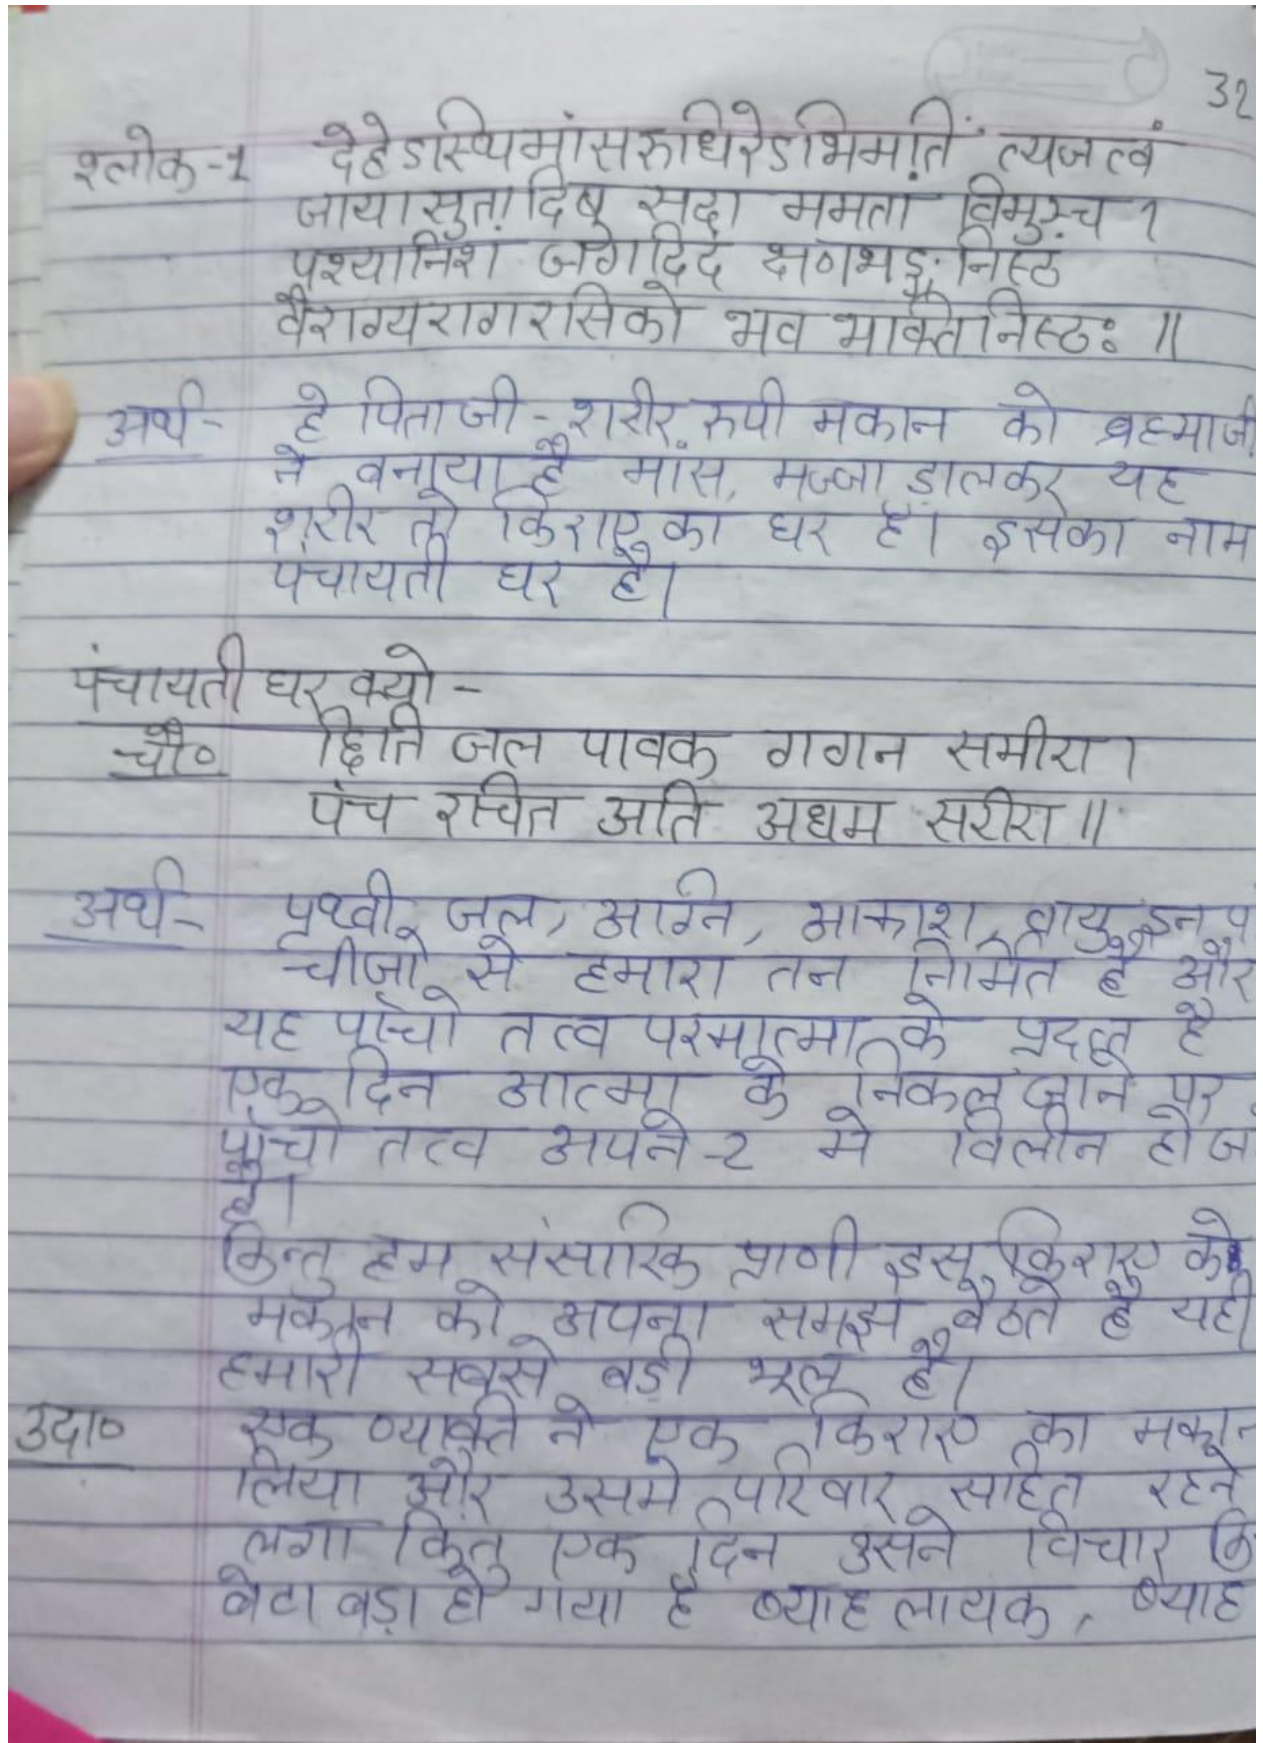 32
श्लोक-1 देहेऽस्थिमांसरुधिरेऽभिमतिं त्यजत्वं
जायासुतादिषु सदा ममतां विमुञ्च ।
पश्यानिशं जगदिदं क्षणभङ्गनिष्ठं
वैराग्यरागरसिको भव भक्तिनिष्ठः ॥
अर्थ- हे पिताजी - शरीर रुपी मकान को ब्रह्माजी
ने बनाया है मांस, मज्जा डालकर यह
शरीर तो किराए का घर है। इसका नाम
पंचायती घर है।
पंचायती घर क्यो -
चौ० छिति जल पावक गगन समीरा ।
पंच रचित अति अधम सरीरा ॥
अर्थ- पृथ्वी, जल, अग्नि, आकाश, वायु इन
चीजो से हमारा तन निर्मित है और
यह पाँचो तत्व परमात्मा के प्रदत्त है
एक दिन आत्मा के निकल जाने पर
पाँचो तत्व अपने-2 मे विलीन हो ज
है।
किन्तु हम संसारिक प्राणी इस किराए के
मकान को अपना समझ बैठते है यही
हमारी सबसे बडी भूल है।
उदा० एक व्यक्ति ने एक किराए का मकान
लिया और उसमे परिवार सहित रहने
लगा किंतु एक दिन उसने विचार कि
बेटा बड़ा हो गया है ब्याह लायक, ब्याह